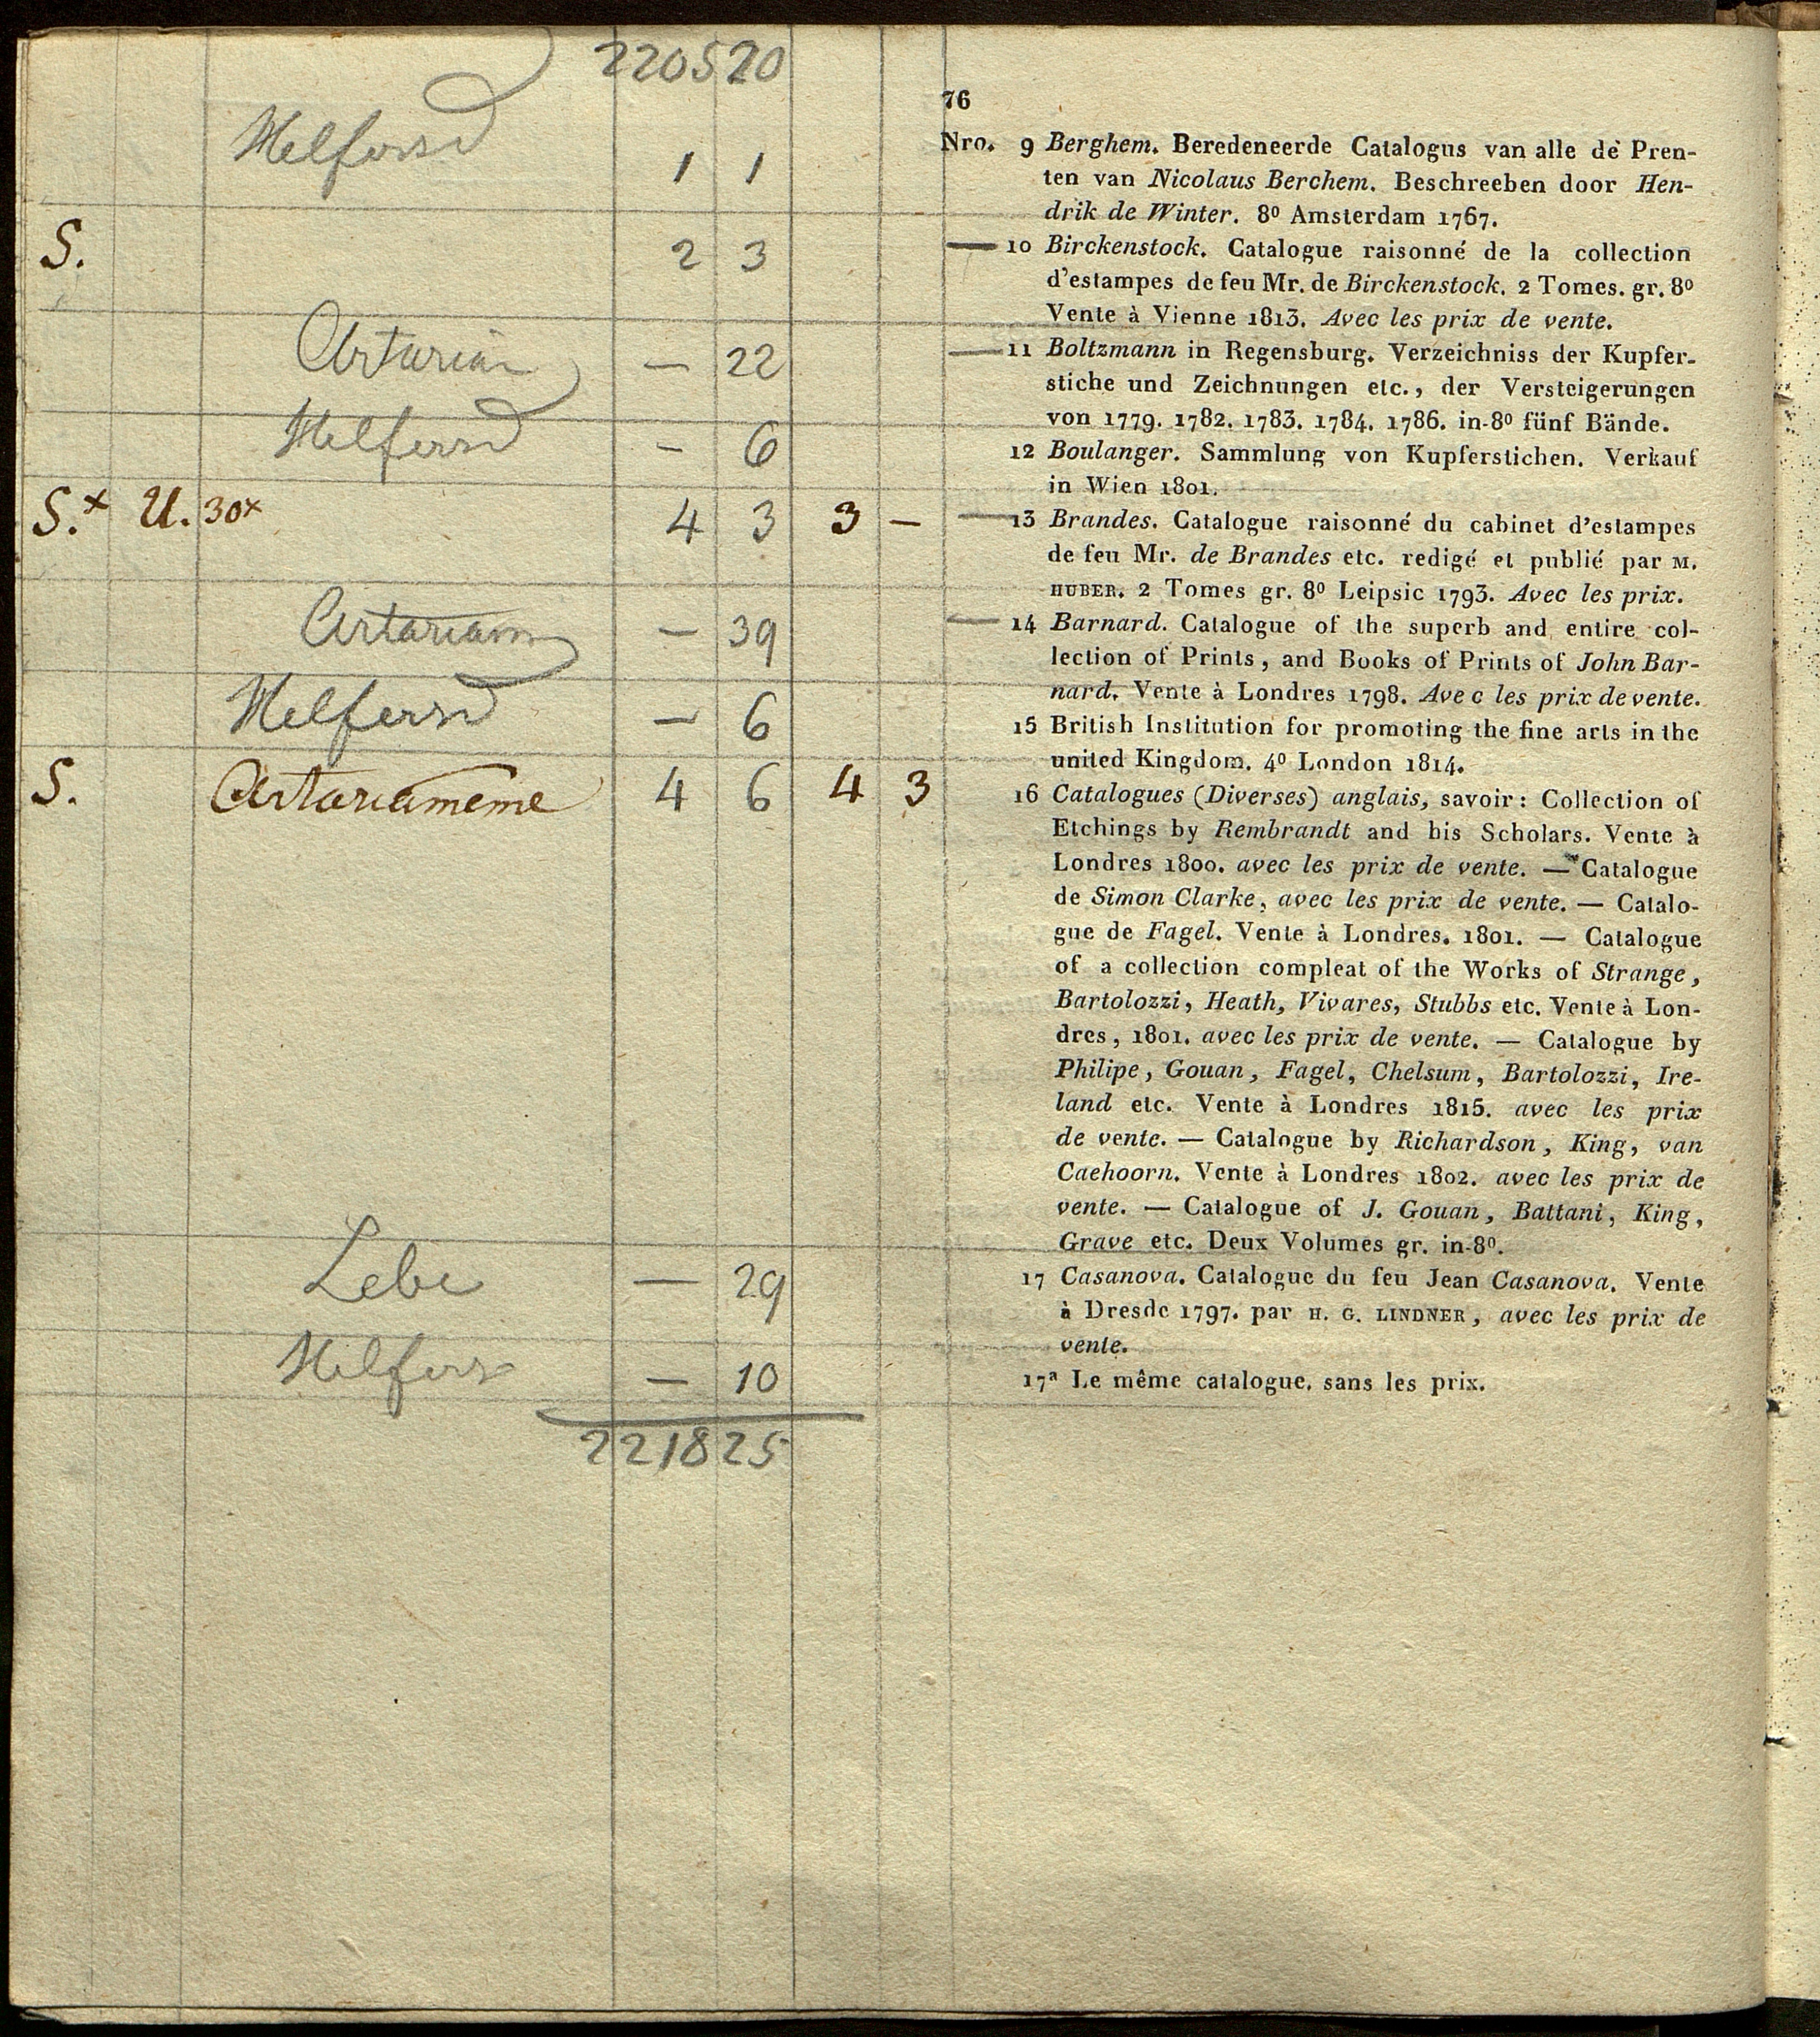 220520
76
Helfersd
1 1
Nro. 9 Berghem. Beredeneerde Catalogus van alle de Pren-
ten van Nicolaus Berchem. Beschreeben door Hen-
drik de Winter. 8º Amsterdam 1767.
S. 2 3
— 10 Birckenstock. Catalogue raisonné de la collection
d'estampes de feu Mr. de Birckenstock. 2 Tomes. gr. 8º
Vente à Vienne 1813. Avec les prix de vente.
— 22
— 11 Boltzmann in Regensburg. Verzeichniss der Kupfer-
stiche und Zeichnungen etc., der Versteigerungen
von 1779. 1782. 1783. 1784. 1786. in-8º fünf Bände.
Helfersd — 6
12 Boulanger. Sammlung von Kupferstichen. Verkauf
in Wien 1801.
S.x U. 30x 4 3 3 —
— 13 Brandes. Catalogue raisonné du cabinet d'estampes
de feu Mr. de Brandes etc. redigé et publié par M.
HUBER. 2 Tomes gr. 8º Leipsic 1793. Avec les prix.
— 39
— 14 Barnard. Catalogue of the superb and entire col-
lection of Prints, and Books of Prints of John Bar-
nard. Vente à Londres 1798. Avec les prix de vente.
Helfersd — 6
15 British Institution for promoting the fine arts in the
united Kingdom. 4º London 1814.
S. 4 6 4 3
16 Catalogues (Diverses) anglais, savoir: Collection of
Etchings by Rembrandt and his Scholars. Vente à
Londres 1800. avec les prix de vente. — Catalogue
de Simon Clarke, avec les prix de vente. — Catalo-
gue de Fagel. Vente à Londres. 1801. — Catalogue
of a collection compleat of the Works of Strange,
Bartolozzi, Heath, Vivares, Stubbs etc. Vente à Lon-
dres, 1801. avec les prix de vente. — Catalogue by
Philipe, Gouan, Fagel, Chelsum, Bartolozzi, Ire-
land etc. Vente à Londres 1815. avec les prix
de vente. — Catalogue by Richardson, King, van
Caehoorn. Vente à Londres 1802. avec les prix de
vente. — Catalogue of J. Gouan, Battani, King,
Grave etc. Deux Volumes gr. in-8º.
— 29
17 Casanova. Catalogue du feu Jean Casanova. Vente
à Dresde 1797. par H. G. LINDNER, avec les prix de
vente.
— 10
17ª Le même catalogue, sans les prix.
221825